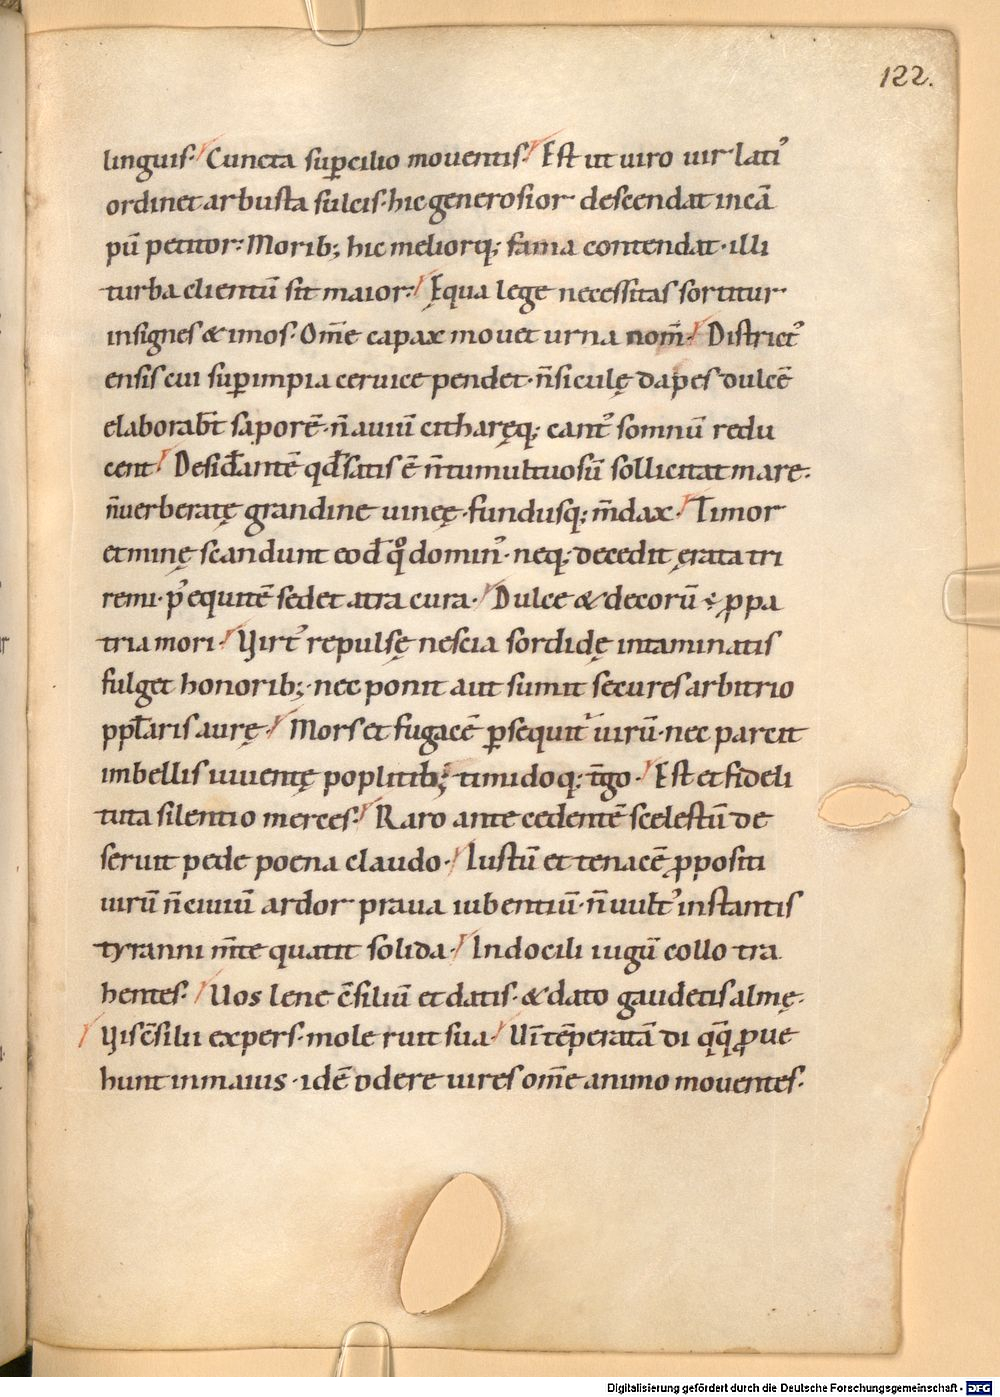 122.
linguis· Cuncta suꝑcilio mouentis· Est ut uiro uir lati᷒
ordinet arbusta sulcis· hic generosior descendat in cā
pū petitor· Morib; hic meliorq; fama contendat· illi
turba clientū sit maior· Ęqua lege necessitas sortitur
insignes & imos· Om̄e capax mouet urna nom̄· District᷒
ensis cui suꝑ impia ceruice pendet· n̄ siculę dapes dulcē
elaborab̄t saporē· n̄ auiū citharęq; cant᷒ somnū redu
cent· Desid̄antē qd̄ satis ē n̄ tumultuosū sollicitat mare·
n̄ uerberatę grandine uineę· fundusq; m̄dax· Timor
et minę scandunt eod̄ qͦ domin᷒· neq; decedit ęrata tri
remi· p᷒ equitē sedet atra cura· Dulce & decorū ÷ ꝓ pa
tria mori· Virt᷒ repulsę nescia sordidę intaminatis
fulget honorib;· nec ponit aut sumit secures arbitrio
ppl̄aris aurę· Mors et fugacē ꝑsequit᷑ uirū· nec parcit
imbellis iuuentę poplitib; timidoq; t̄go· Est et fideli
tuta silentio merces· Raro antecedentē scelestū de
seruit pede poena claudo· Iustū et tenacē ꝓpositi
uirū n̄ ciuiū ardor praua iubentiū· n̄ uult᷒ instantis
tyranni m̄te quatit solida· Indocili iugū collo tra
hentes· Uos lene c̄siliū et datis· & dato gaudetis almę·
Vis c̄silii expers· mole ruit sua· Uī tēperatā di qq̄ ꝓue
hunt in maius· idē odere uires om̄e animo mouentes·
Digitalisierung gefördert durch die Deutsche Forschungsgemeinschaft - DFG